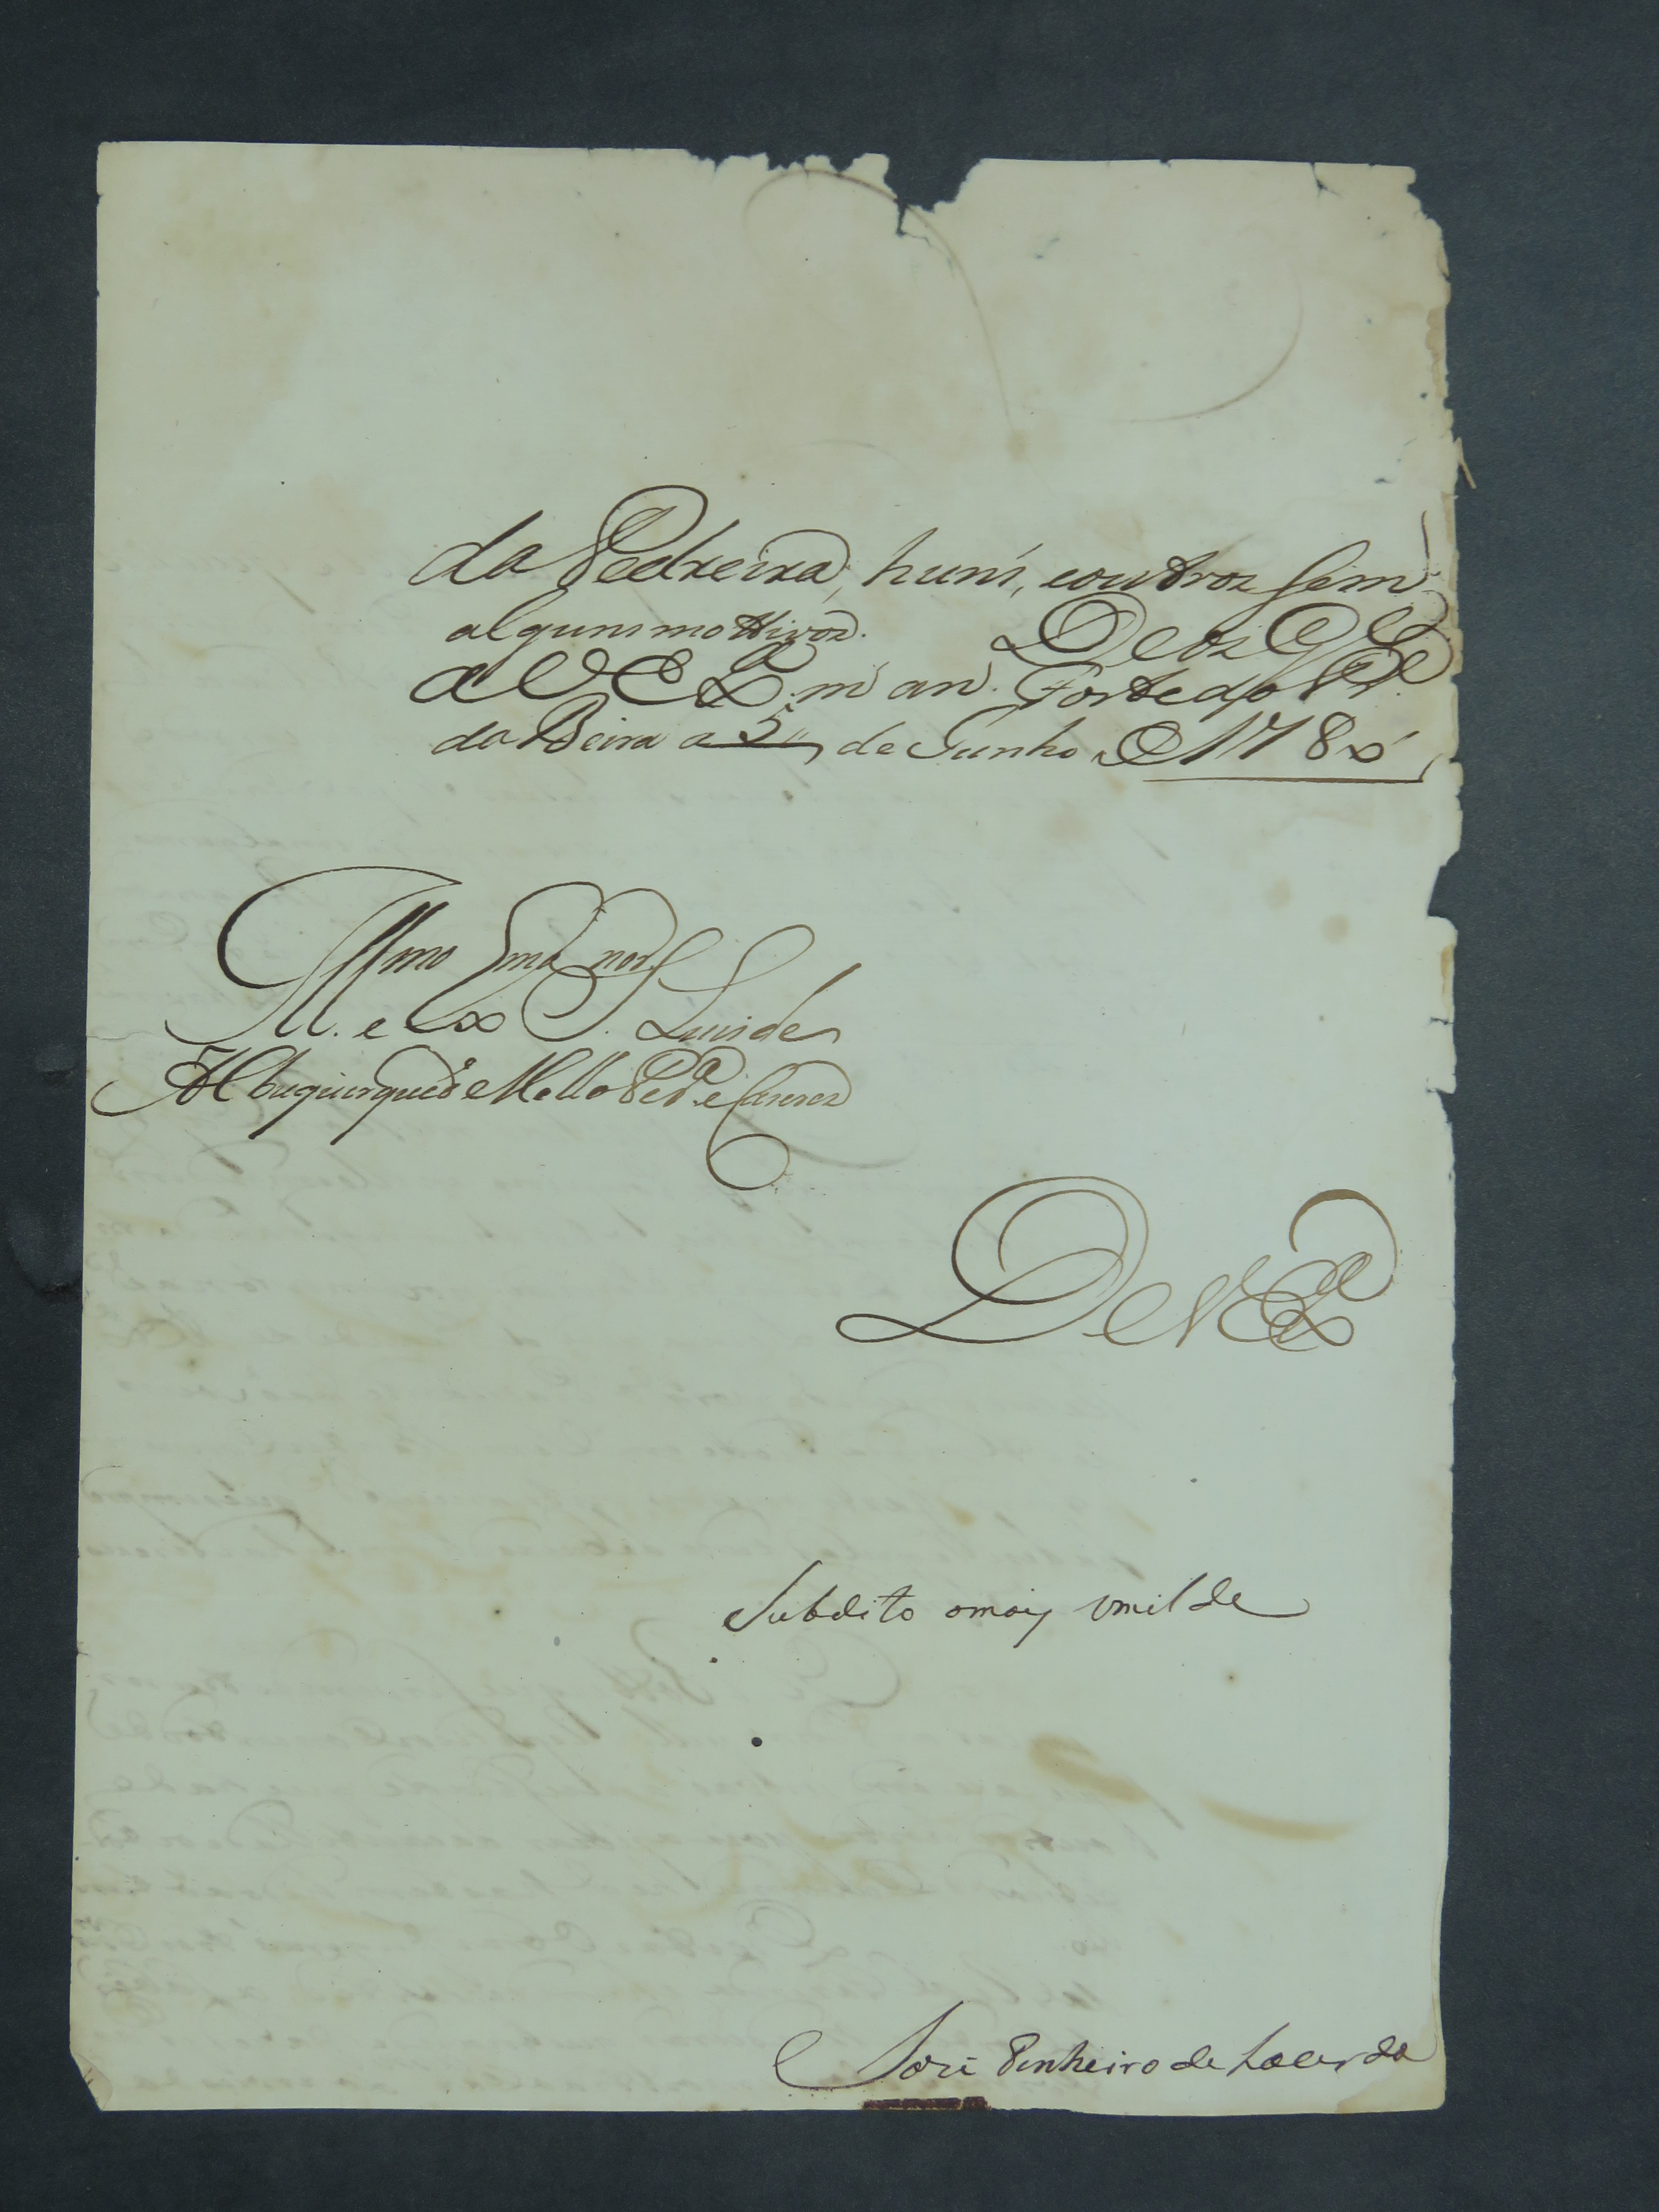 da Pedreira, huns, e outros sem
alguns mottivos. Deos G.de
a V Ex.a m. an. Forte do P.e
da Beira a 5 de Junho de 178
Ill.mo e Ex.mo S.nor Luis de
Albuquerque de Mello Per.a e Caceres
De V Ex.a
Subdito o mais umilde
José Pinheiro de Lacerda